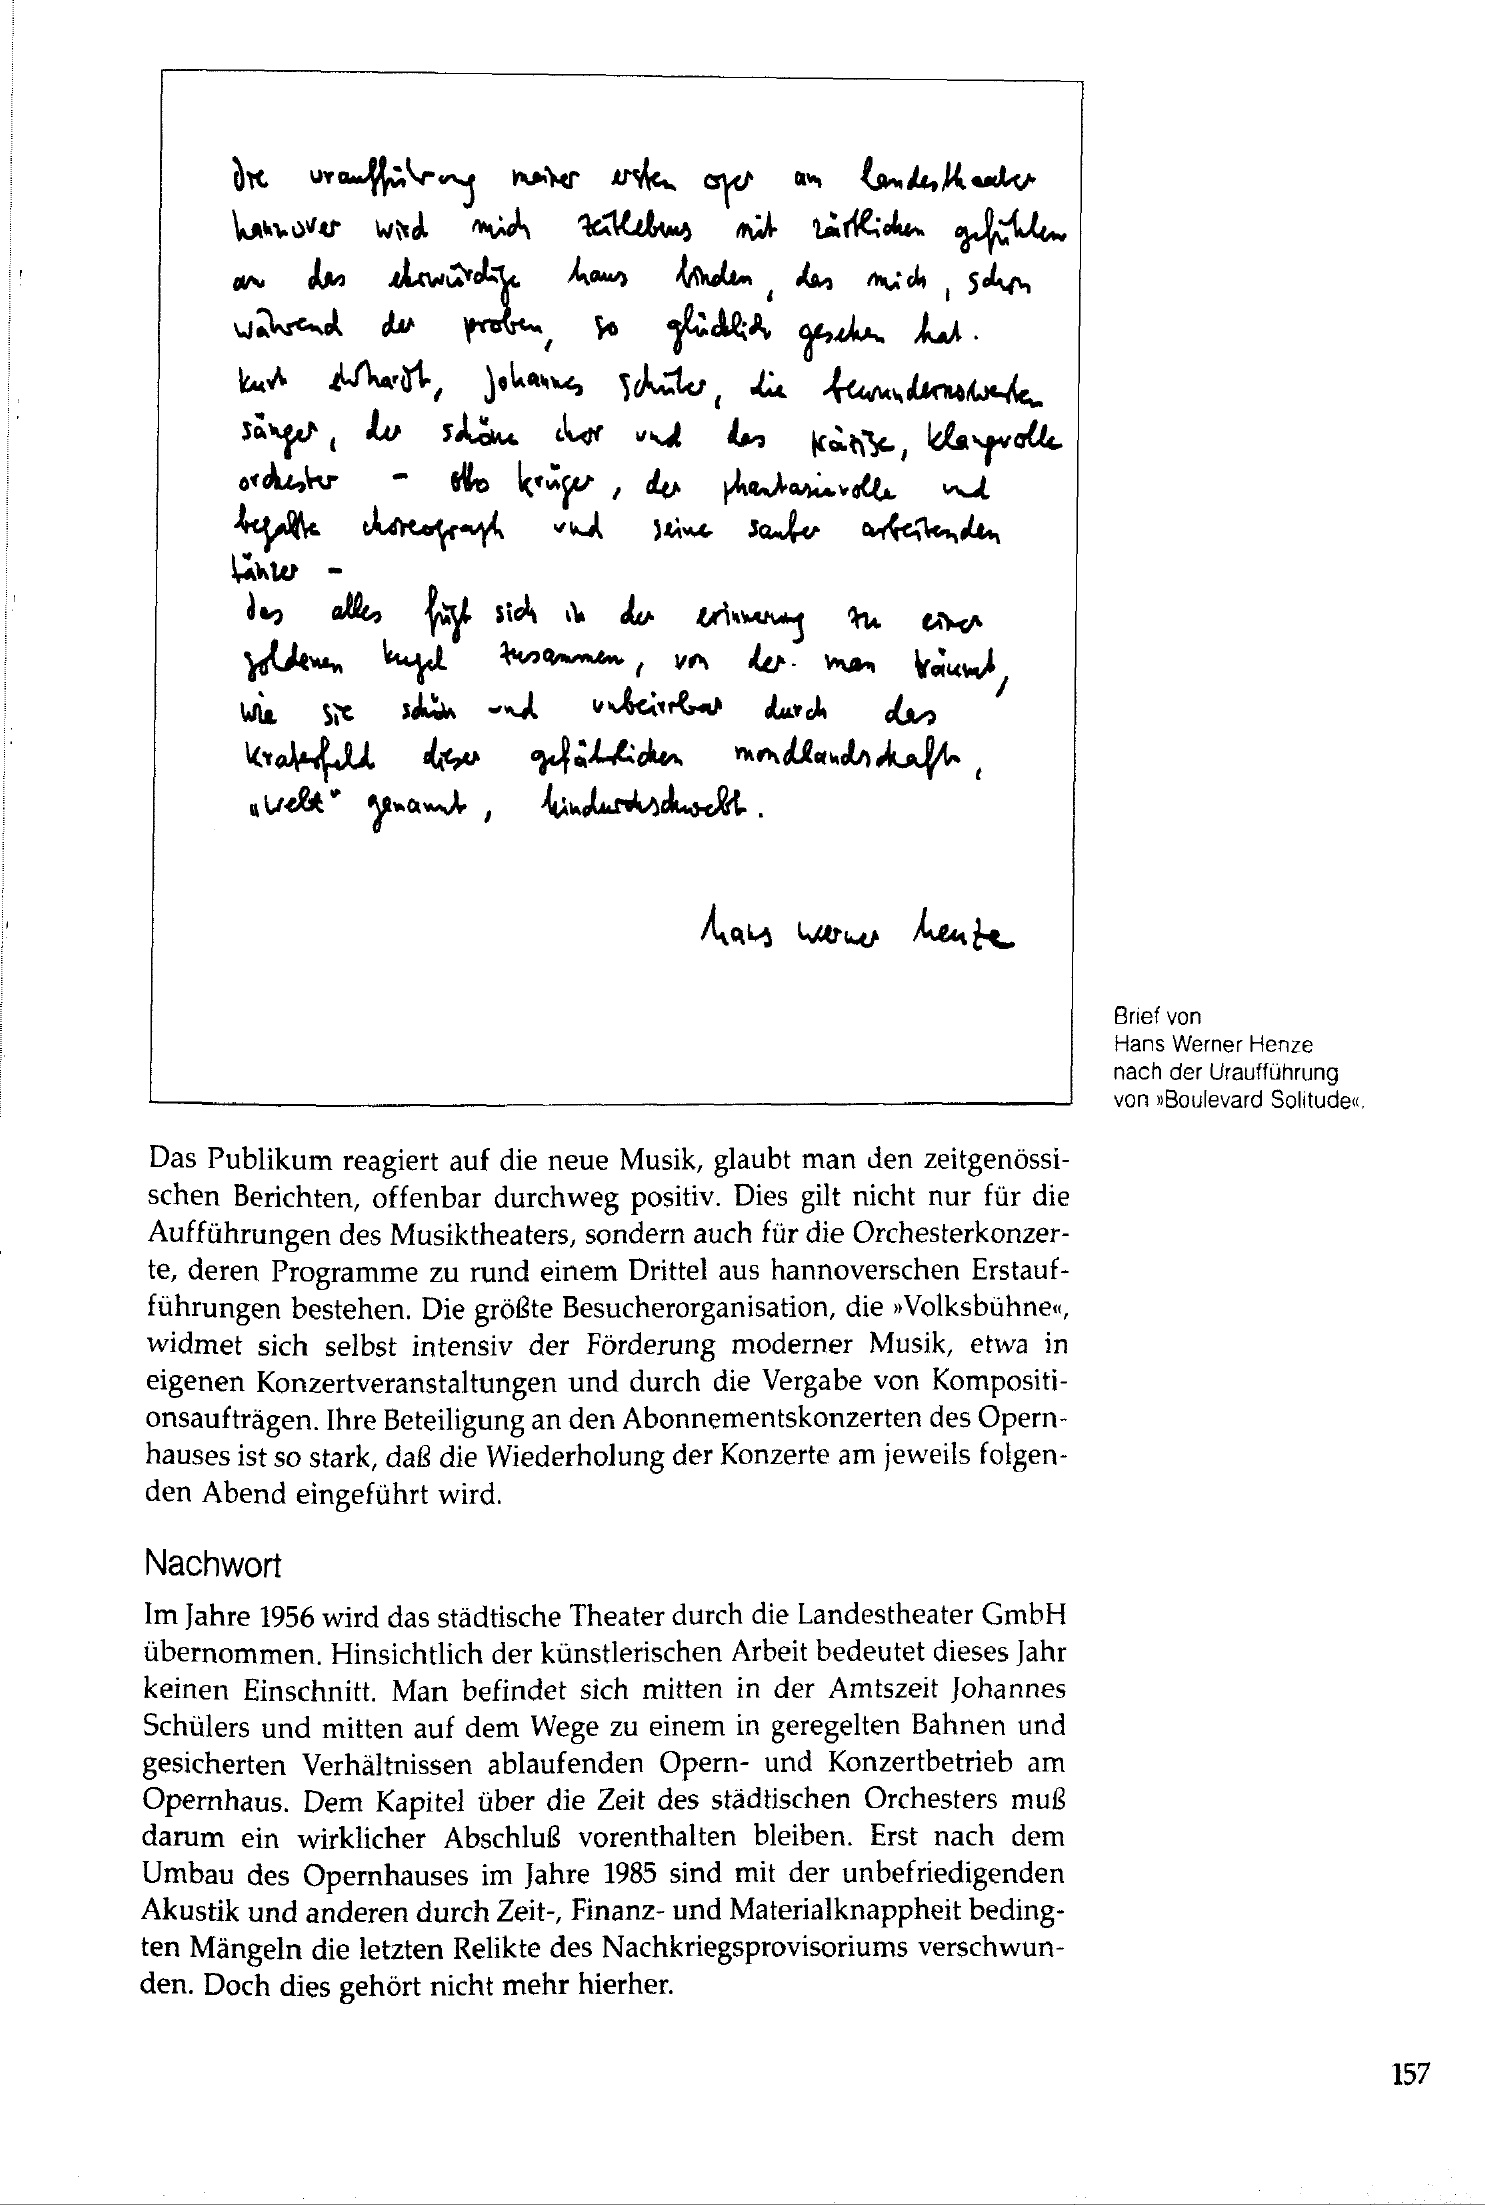 die uraufführung meiner ersten oper am landestheater
hannover wird mich zeitlebens mit zärtlichen gefühlen
an das ehrwürdige haus binden, das mich, schon
während der proben, so glücklich gesehen hat.
kurt ehrhardt, johannes schüler, die bewundernswerten
sänger, der schöne chor und das präzise, klangvolle
orchester – otto krüger, der phantasievolle und
begabte choreograph und seine sauber arbeitenden
tänzer –
das alles fügt sich in der erinnerung zu einer
goldenen kugel zusammen, von der man träumt,
wie sie schön und unbeirrbar durch das
kraterfeld dieser gefährlichen mondlandschaft,
„welt“ genannt, hindurchschwebt.
hans werner henze
Brief von
Hans Werner Henze
nach der Uraufführung
von »Boulevard Solitude«.
Das Publikum reagiert auf die neue Musik, glaubt man den zeitgenössi-
schen Berichten, offenbar durchweg positiv. Dies gilt nicht nur für die
Aufführungen des Musiktheaters, sondern auch für die Orchesterkonzer-
te, deren Programme zu rund einem Drittel aus hannoverschen Erstauf-
führungen bestehen. Die größte Besucherorganisation, die »Volksbühne«,
widmet sich selbst intensiv der Förderung moderner Musik, etwa in
eigenen Konzertveranstaltungen und durch die Vergabe von Kompositi-
onsaufträgen. Ihre Beteiligung an den Abonnementskonzerten des Opern-
hauses ist so stark, daß die Wiederholung der Konzerte am jeweils folgen-
den Abend eingeführt wird.
Nachwort
Im Jahre 1956 wird das städtische Theater durch die Landestheater GmbH
übernommen. Hinsichtlich der künstlerischen Arbeit bedeutet dieses Jahr
keinen Einschnitt. Man befindet sich mitten in der Amtszeit Johannes
Schülers und mitten auf dem Wege zu einem in geregelten Bahnen und
gesicherten Verhältnissen ablaufenden Opern- und Konzertbetrieb am
Opernhaus. Dem Kapitel über die Zeit des städtischen Orchesters muß
darum ein wirklicher Abschluß vorenthalten bleiben. Erst nach dem
Umbau des Opernhauses im Jahre 1985 sind mit der unbefriedigenden
Akustik und anderen durch Zeit-, Finanz- und Materialknappheit beding-
ten Mängeln die letzten Relikte des Nachkriegsprovisoriums verschwun-
den. Doch dies gehört nicht mehr hierher.
157